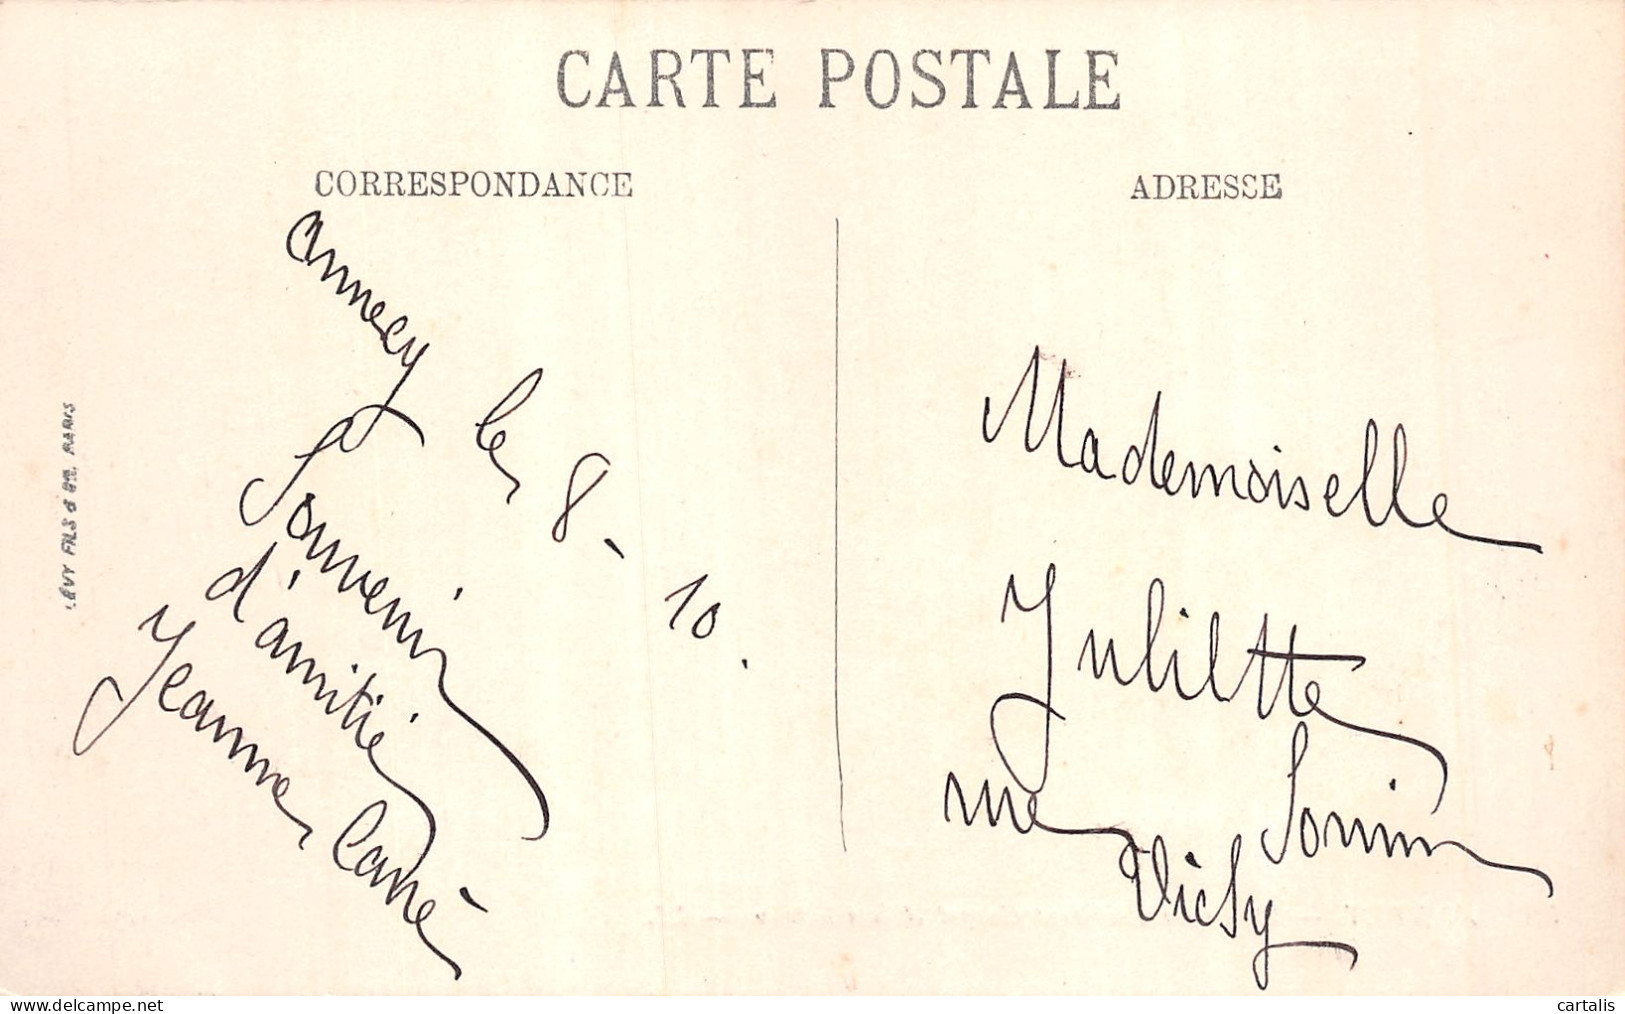 CARTE POSTALE
CORRESPONDANCE
ADRESSE
Annecy le 8-10.
Souvenir
d'amitié
Jeanne Carré
Mademoiselle
Juliette
Sornin
rue
Vichy
LÉVY FILS & Cie. PARIS
cartalis